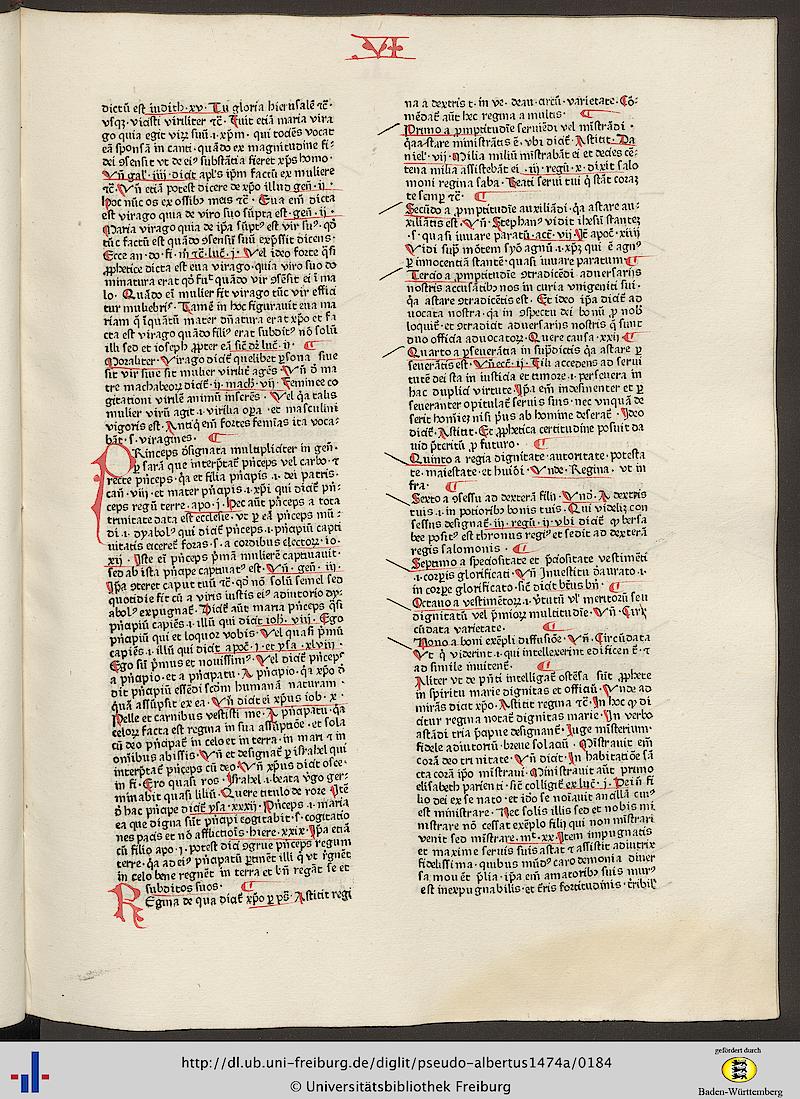 VI
dictū est iudith·xv· Tu gloria hierusalē ⁊c̄·
vsqꝫ· viciſti viriliter ⁊c̄· Fuit etiā maria vira
go quia egit viꝝ suū .i. xp̄m· qui tociēs vocat
eā sponsā in canti· quādo ex magnitudine fi-
dei ꝯsensit vt de eiꝰ substātia fieret xp̄s homo·
Vn̄ gal· iiij· dicit apl̄s ip̄m factū ex muliere
⁊c̄· Vn̄ etiā potest dicere de xp̄o illud gen̄· ij·
Hoc nūc os ex ossibꝰ meis ⁊c̄· Eua em̄ dicta
est virago quia de viro suo sūpta est· gen̄· ij·
Maria virago quia de ip̄a sūptꝰ est vir suꝰ· qō
tūc factū est quādo ꝯsensū suū exp̄ssit dicens·
Ecce an· do· fi· m̄ ⁊c̄· luc̄· j· Vel ideo forte q̄si
ꝓphetice dicta est eua virago· quia viro suo do
minatura erat qō fuit quādo vir ꝯsēsit ei ī ma
lo· Quādo em̄ mulier fit virago tūc vir effici
tur muliebris· Tamē in hoc figurauit eua ma
riam q̄ īquātū mater dn̄atura erat xp̄o et fa
cta est virago quādo filiꝰ erat subditꝰ nō solū
illi sed et ioseph ꝓpter eā sic̄ dꝛ luc̄· ij·
Moraliter· Virago dicit̄ quelibet ꝑsona siue
sit vir siue sit mulier virilit̄ agēs· Vn̄ d̄ ma
tre machabeoꝝ dicit̄· ij· mach· vij· Feminee co
gitationi virilē animū inserēs· Vel q̄a talis
mulier virū agit .i. virilia oꝑa· et masculini
vigoris est· Antiq̄ em̄ fortes femīas ita voca-
bāt· s· viragines·
PRinceps ꝯsignata multipliciter in gen̄·
ꝑ sarā que interp̄tat̄ p̄nceps vel carbo· ⁊
recte p̄nceps· q̄a et filia p̄ncipis .i. dei patris·
can̄· viij· et mater p̄ncipis .i. xp̄i qui dicit̄ p̄n-
ceps regū terre· apo· j· Hec aūt p̄nceps a tota
trinitate data est ecclesie· vt ꝑ eā p̄nceps mū-
di .i. dyabolꝰ qui dicit̄ p̄nceps .i. p̄ncipiū capti
uitatis eiceret̄ foras· s· a cordibus electoꝝ· io·
xij· Iste em̄ p̄nceps p̄mā mulierē captiuauit·
sed ab ista p̄ncipe captiuatꝰ est· Vn̄· gen̄· iij·
Ip̄a ꝯteret caput tuū ⁊c̄· qō nō solū semel sed
quotidie fit cū a viris iustis eiꝰ adiutorio dy-
abolꝰ expugnat̄· Dicit̄ aūt maria p̄nceps q̄si
p̄ncipiū capiēs .i. illū qui dicit ioh̄· viij· Ego
p̄ncipiū qui et loquor vobis· Vel quasi p̄mū
capiēs .i. illū qui dicit apoc̄· j· et ysa· xlviij·
Ego sū p̄mus et nouissimꝰ· Vel dicit̄ p̄nceps
a p̄ncipio· et a p̄ncipatu· A p̄ncipio· q̄a xp̄o d̄
dit p̄ncipiū essēdi scd̄m humanā naturam
quā assūpsit ex ea· Vn̄ dicit ei xp̄us iob· x·
Pelle et carnibus vestisti me· A p̄ncipatu· q̄a
celoꝝ facta est regina in sua assūptiōe· et sola
cū deo p̄ncipat̄ in celo et in terra· in mari ⁊ in
omnibus abissis· Vn̄ et designat̄ ꝑ israhel qui
interp̄tat̄ p̄nceps cū deo· Vn̄ xp̄us dicit osee·
in fi· Ero quasi ros· Israhel .i. beata v̄go ger-
minabit quasi liliū· Quere titulo de rore· Itē
d̄ hac p̄ncipe dicit̄ ysa· xxxij· P̄nceps .i. maria
ea que digna sūt p̄ncipi cogitabit· s· cogitatio
nes pacis et nō afflictiōis· hiere· xxix· Ip̄a etiā
cū filio apo· j· potest dici ꝯgrue p̄nceps regum
terre· q̄a ad eiꝰ p̄ncipatū ꝑtinēt illi q̄ vt r̄gnēt
in celo bene regnēt in terra et bn̄ regāt se et
subditos suos·
REgina de qua dicit̄ xp̄o ꝑ ps̄· Astitit regi
na a dextris t· in ve· deau· circū· varietate· Cō-
mēdat̄ aūt hec regina a multis·
Primo a ꝓmptitudīe seruiēdi vel mīstrādi·
q̄a astare ministrātis ē· vbi dicit̄· Astitit· Da
niel· vij· Milia miliū ministrabāt ei et decies cē-
tena milia assistebāt ei· iij· regū· x· dixit salo
moni regina saba· Beati serui tui q̄ stāt coraȝ
te semꝑ ⁊c̄·
Secūdo a ꝓmptitudīe auxiliādi· q̄a astare au-
xiliātis est· Vn̄· Stephanꝰ vidit ihesū stantez
·s· quasi iuuare paratū· act̄· vij· Itē apoc̄· xiiij
Vidi suꝑ mōtem syō agnū .i. xp̄ꝫ qui ē agnꝰ
ꝑ innocentiā stantē· quasi iuuare paratum
Tercio a ꝓmptitudīe ꝯtradicēdi aduersarijs
nostris accusātibꝰ nos in curia vnigeniti sui·
q̄a astare ꝯtradicētis est· Et ideo ip̄a dicit̄ ad
uocata nostra· q̄a in ꝯspectu dei bonū ꝓ nob̄
loquit̄· et ꝯtradicit aduersarijs nostris q̄ sunt
duo officia aduocatoꝝ· Quere causa· xxij·
Quarto a ꝑseuerātia in sup̄dictis q̄a astare ꝑ
seuerātis est· Vn̄ ecc̄· ij· Fili accedens ad serui
tutē dei sta in iusticia et timore .i. ꝑseuera in
hac duplici virtute· Ip̄a em̄ indesinenter et ꝑ
seueranter opitulat̄ seruis suis· nec vnquā de
serit honiēz nisi p̄us ab homine deserat̄· Ideo
dicit̄· Astitit· Et ꝓphetica certitudine posuit da
uid p̄teritū ꝓ futuro·
Quinto a regia dignitate· autoritate· potesta
te· maiestate· et huiꝰdi· Vnde· Regina· vt in
fra·
Sexto a ꝯsessu ad dexterā filij· Vn̄ō· A dextris
tuis .i. in potioribꝰ bonis tuis· Qui videlicꝫ con
sessus designat̄· iij· regū· ij· vbi dicit̄ q bersa
bee positꝰ est thronus regiꝰ et sedit ad dexterā
regis salomonis·
Septimo a speciositate et p̄ciositate vestimēti
.i. corꝑis glorificati· Vn̄ Inuestitu deaurato .i.
in corꝑe glorificato· sic̄ dicit btūs bn̄·
Octauo a vestimētoꝝ .i. v̄tutū vel meritorū seu
dignitatū vel p̄mioꝝ multitudīe· Vn̄· Circ
cūdata varietate·
Nono a boni exēpli diffusiōe· Vn̄· Circūdata
Vt q̄ viderint .i. qui intellexerint edificent̄· ⁊
ad simile inuitent̄·
Aliter vt de p̄nti intelligat̄ ostēsa fuit ꝓphete
in spiritu marie dignitas et officiū· Vnde ad
mirās dicit xp̄o· Astitit regina ⁊c̄· In hoc q di
citur regina notat̄ dignitas marie· In verbo
astādi tria p̄cipue designant̄· Iuge misterium·
fidele adiutoriū· breue solaciū· Mistrauit em̄
corā deo trinitate· Vn̄ dicit· In habitatiōe sā
cta corā ip̄o mistraui· Ministrauit aūt primo
elisabeth parienti· sic̄ colligit̄ ex luc̄· j· Dein̄ fi
lio dei ex se nato· et idō se noīauit ancillā cuiꝰ
est ministrare· Nec solis illis sed et nobis mi
nistrare nō cessat exēplo filij qui non mistrari
venit sed mistrare· mt̄· xx· Item impugnatis
et maxime seruis suis astat ⁊ assistit adiutrix
fidelissima· quibus mūdꝰ caro demonia diuer
sa mouēt p̄lia· ip̄a em̄ amatoribꝰ suis murꝰ
est inexpugnabilis· et t̄ris fortitudinis· t̄ribil
http://dl.ub.uni-freiburg.de/diglit/pseudo-albertus1474a/0184
© Universitätsbibliothek Freiburg
gefördert durch
Baden-Württemberg